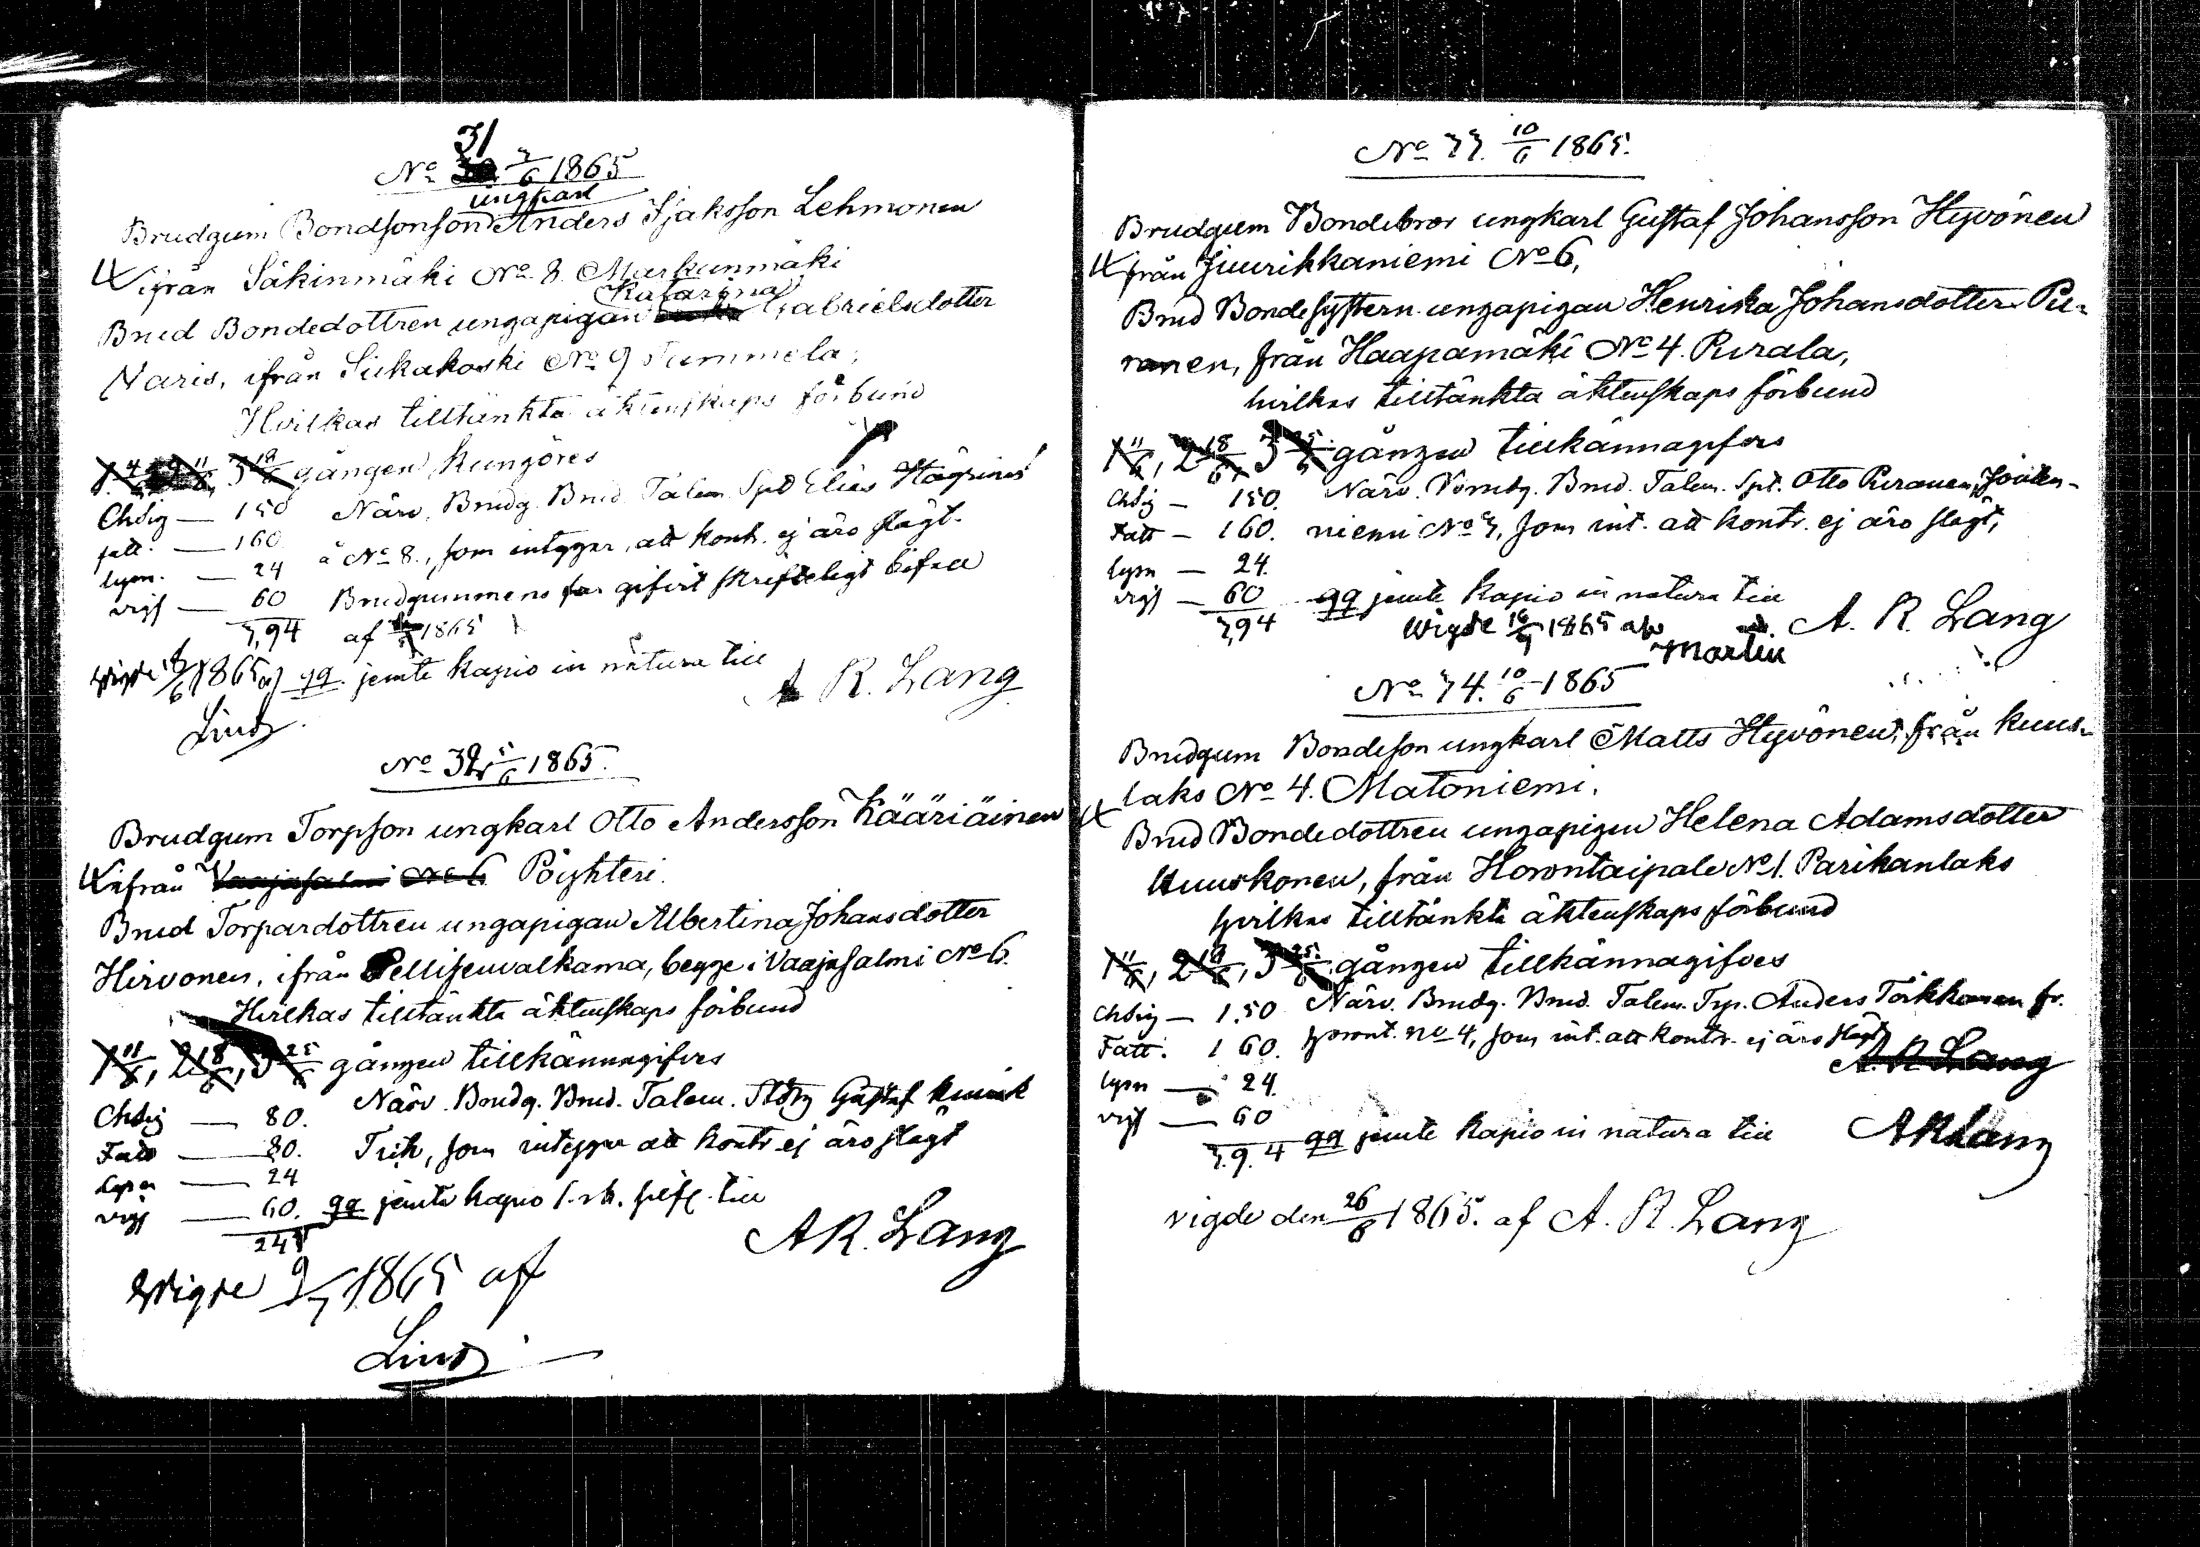 31
No 3/6 1865
ungkarl
Brudgum Bondsonson Anders Isaksson Lehmonen
ifrån Säkinmäki No 8 Markunmäki
Katarina
Brud Bondedottren ungapigan Gabrielsdotter
Naris, ifrån Siikakoski No 9 Tummela,
Hvilkas tilltänkta äktenskaps förbund
1 4/6, 2 11/6, 3 18/6 gången kungöres
Chsig — 150 Närv. Brudg. Brud. Talem. Spd Elias
fatt. — 160 å No 8., som intygar, att kontr. ej äro slägt.
lysn. — 24
vigs — 60 Brudgummens far gifvit skrifteligt bifall
3,94 af 1865
Wigde 18/6 1865 af qq. jemte kapio in natura till
A R. Lang
Lind
No 32 5/6 1865.
Brudgum Torpson ungkarl Otto Andersson Kääriäinen
ifrån Vaajasalmi No 6 Pöyhteri.
Brud Torpardottren ungapigan Albertina Johansdotter
Hirvonen, ifrån Pellisenvalkama, begge i Vaajasalmi No 6.
Hvilkas tilltänkta äktenskaps förbund
1 11/6, 2 18/6, 3 25/6 gången tillkännagifves
Chsig — 80. Närv. Brudg. Brud. Talem. Gustaf
Fatt — 80. som intygar att kontr. ej äro slägt
Lysn — 24
vigs — 60. qq jemte kapio 1. rb. till
244
A R. Lang
Wigde 9/7 1865 af
Lind
No 33. 10/6 1865.
Brudgum Bondebror ungkarl Gustaf Johansson Hyvönen
från Juurikkaniemi No 6,
Brud Bondesystern ungapigan Henrika Johansdotter Pu=
ranen, från Haapamäki No 4. Purala,
hvilkas tilltänkta äktenskaps förbund
1 11/6, 2 18/6, 3 25/6 gången tillkännagifves
Chsig — 150. Närv. Brudg. Brud. Talem. Spt. Otto Puranen,
Fatt — 160. niemi No 3, som int. att kontr. ej äro slägt,
lysn — 24.
vigs — 60 qq jemte kapio in natura till
3,94 Wigde 16/7 1865 af A. R. Lang
Martin
No 34. 10/6 1865
Brudgum Bondeson ungkarl Matts Hyvönen, från Kuus=
laks No 4. Matoniemi.
Brud Bondedottren ungapigan Helena Adamsdotter
Kuuskonen, från Horontaipale No 1. Parikanlaks
hvilkas tilltänkta äktenskaps förbund
1 11/6, 2 18/6, 3 25/6 gången tillkännagifves
Chsig — 1.50 Närv. Brudg. Brud. Talem. Anders Törkkönen fr.
Fatt. 1 60. Horont. No 4, som int. att kontr. ej äro slägt
A. R Lang
lysn — 24.
vigs — 60
3.9.4 qq jemte kapio in natura till A R Lang
vigde den 26/6 1865. af A. R. Lang